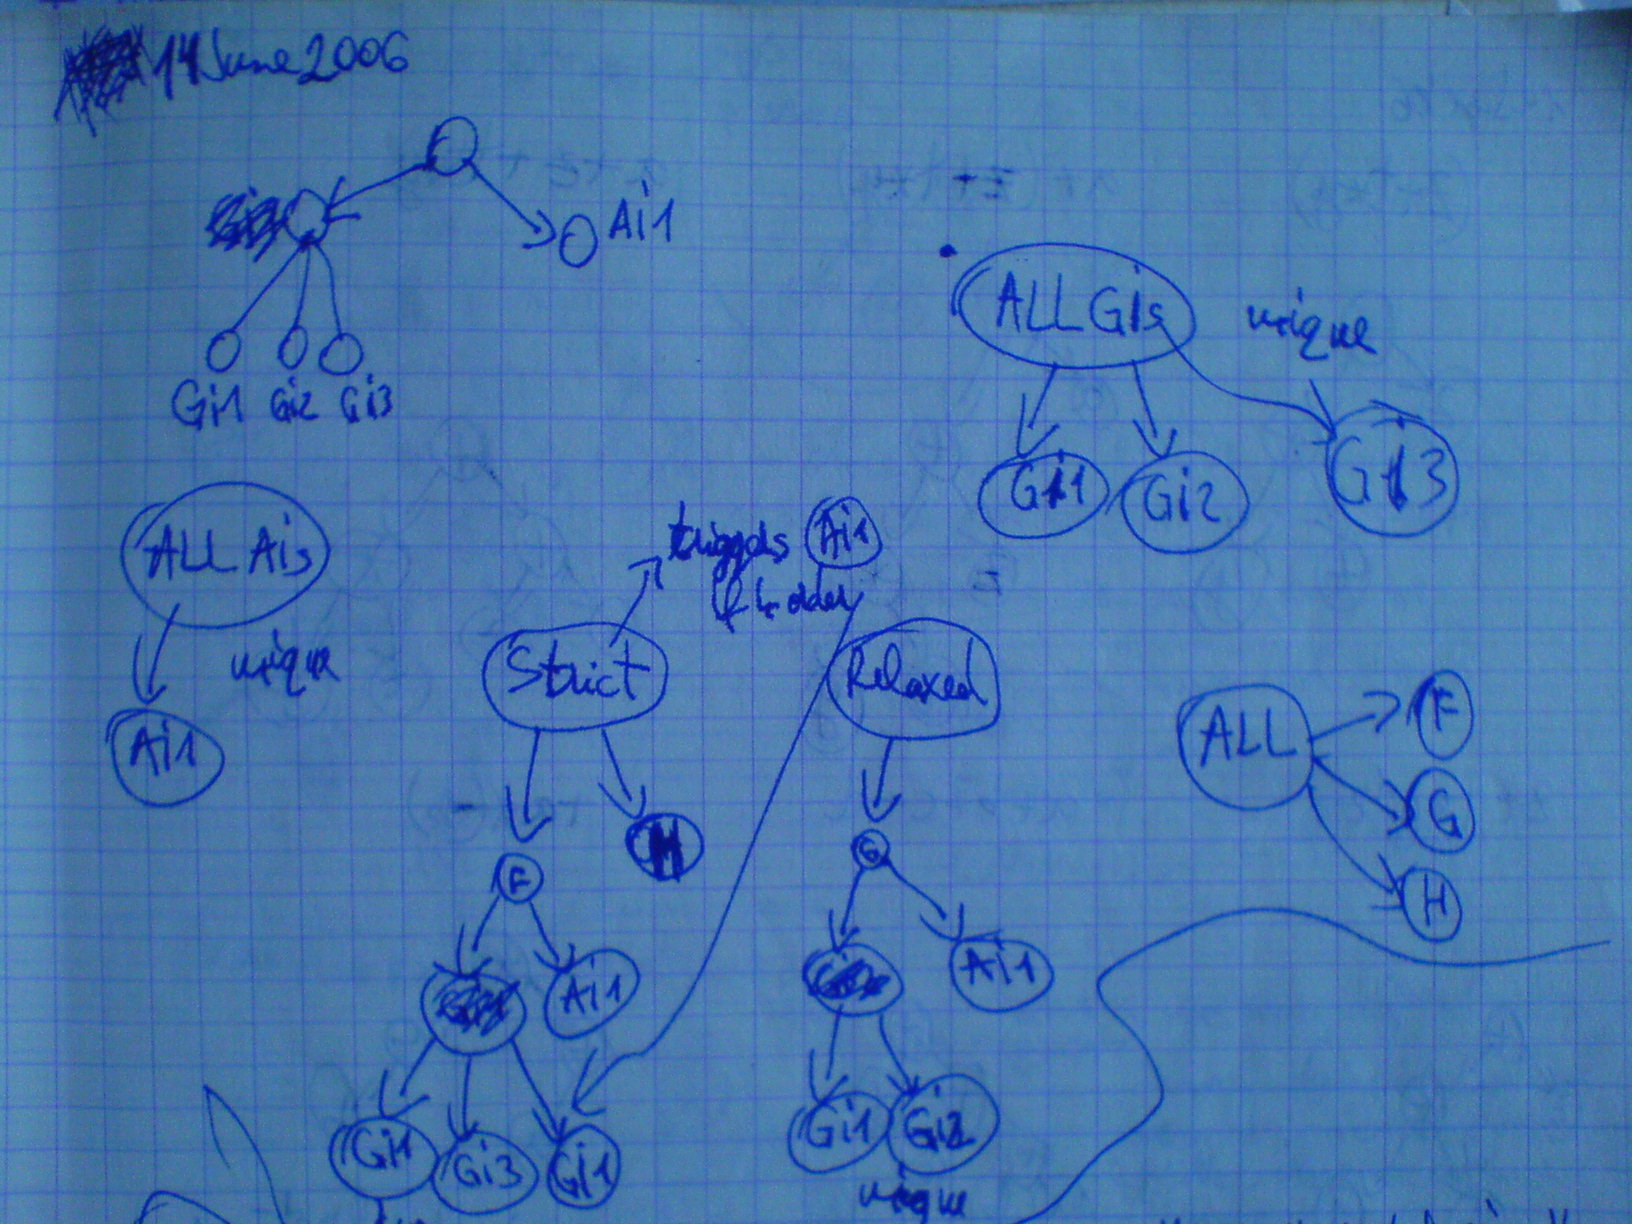 14 June 2006
Ai1
Gi1 Gi2 Gi3
ALL Gis unique
Gi1 Gi2 Gi3
ALL Ais
unique
Ai1
triggers Ai1
Strict
Relaxed
ALL
F
G
H
F
M
G
Ai1
Ai1
Gi1 Gi3 Gi1
Gi1 Gi2
unique